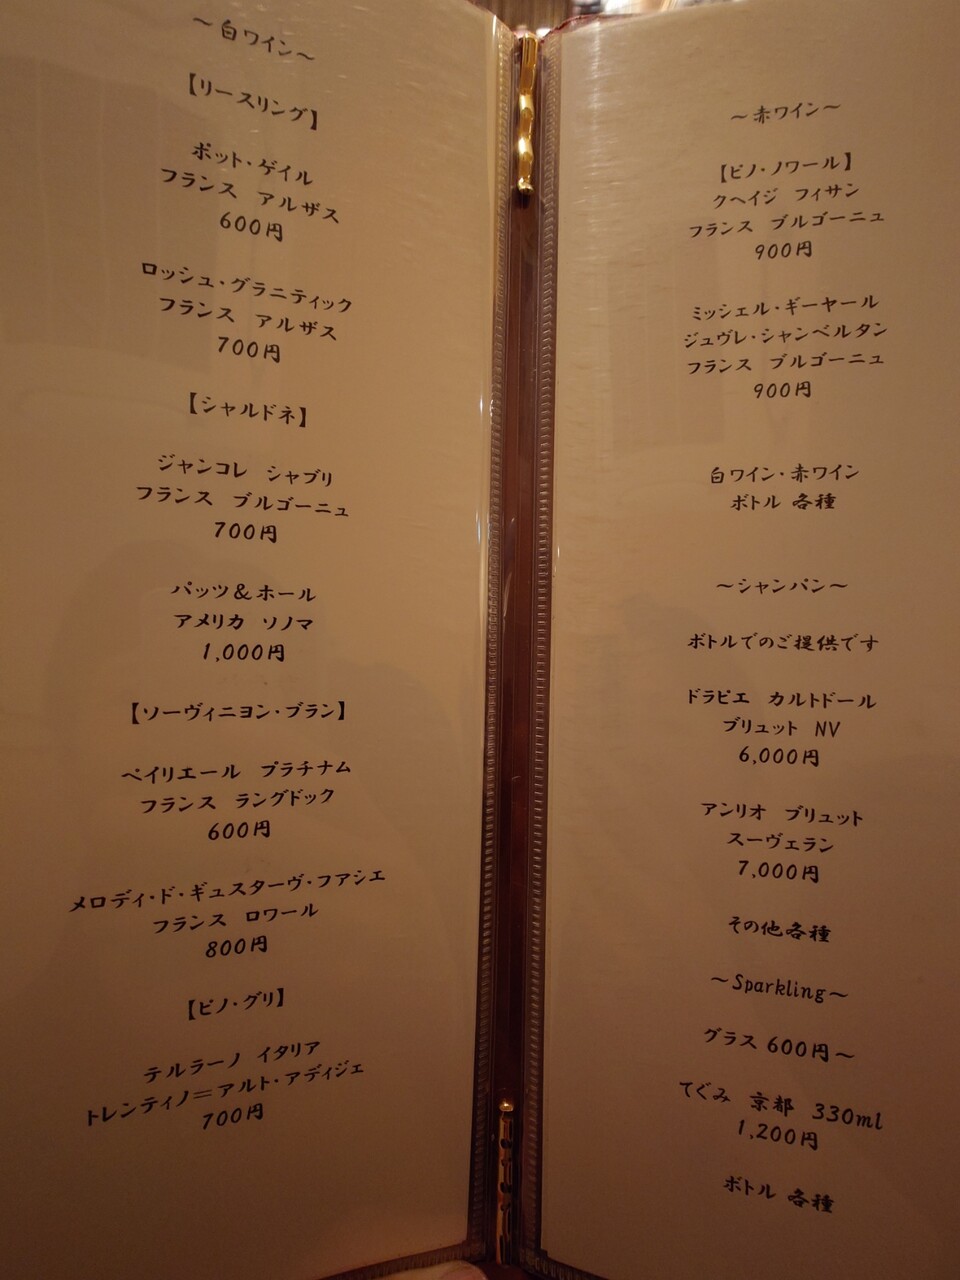 ～白ワイン～
【リースリング】
ポット・ゲイル
フランス アルザス
600円
ロッシュ・グラニティック
フランス アルザス
700円
【シャルドネ】
ジャンコレ シャブリ
フランス ブルゴーニュ
700円
パッツ＆ホール
アメリカ ソノマ
1,000円
【ソーヴィニヨン・ブラン】
ペイリエール プラチナム
フランス ラングドック
600円
メロディ・ド・ギュスターヴ・ファシエ
フランス ロワール
800円
【ピノ・グリ】
テルラーノ イタリア
トレンティノ＝アルト・アディジェ
700円
～赤ワイン～
【ピノ・ノワール】
クヘイジ フィサン
フランス ブルゴーニュ
900円
ミッシェル・ギーヤール
ジュヴレ・シャンベルタン
フランス ブルゴーニュ
900円
白ワイン・赤ワイン
ボトル 各種
～シャンパン～
ボトルでのご提供です
ドラピエ カルトドール
ブリュット NV
6,000円
アンリオ ブリュット
スーヴェラン
7,000円
その他各種
～Sparkling～
グラス 600円～
てぐみ 京都 330ml
1,200円
ボトル 各種